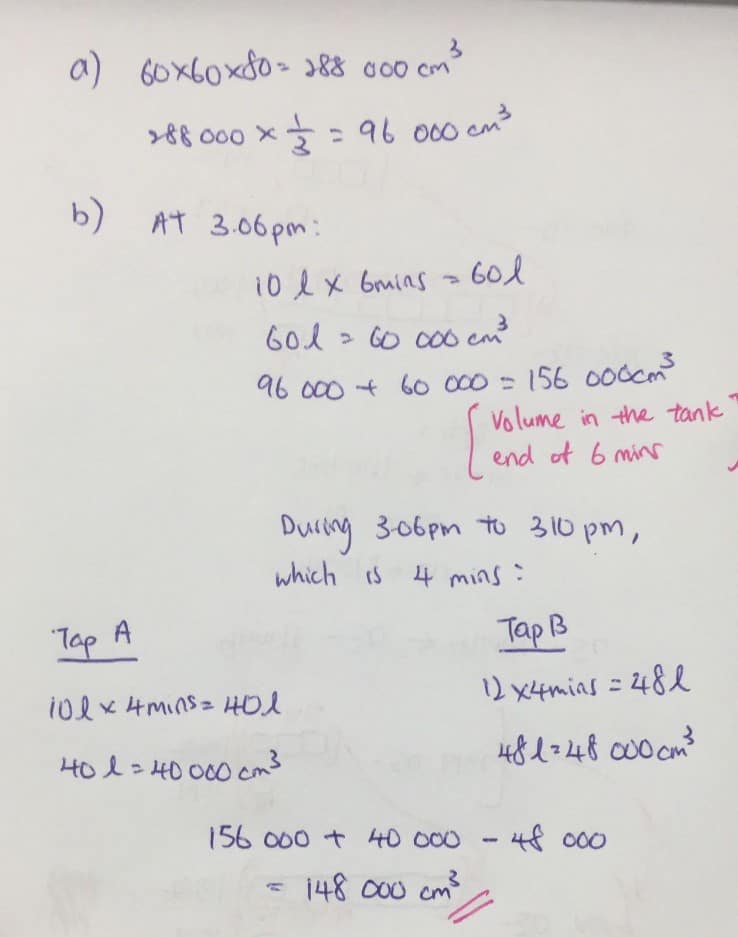 a) 60x60x80 = 288 000 cm³
288 000 × 1/3 = 96 000 cm³
b) At 3.06pm:
10 l x 6mins = 60l
60l = 60 000 cm³
96 000 + 60 000 = 156 000cm³
[Volume in the tank
end of 6 mins]
During 3.06pm to 310 pm,
which is 4 mins:
Tap A
10l x 4mins = 40l
40 l = 40 000 cm³
Tap B
12 x4mins = 48l
48 l = 48 000 cm³
156 000 + 40 000 - 48 000
= 148 000 cm³